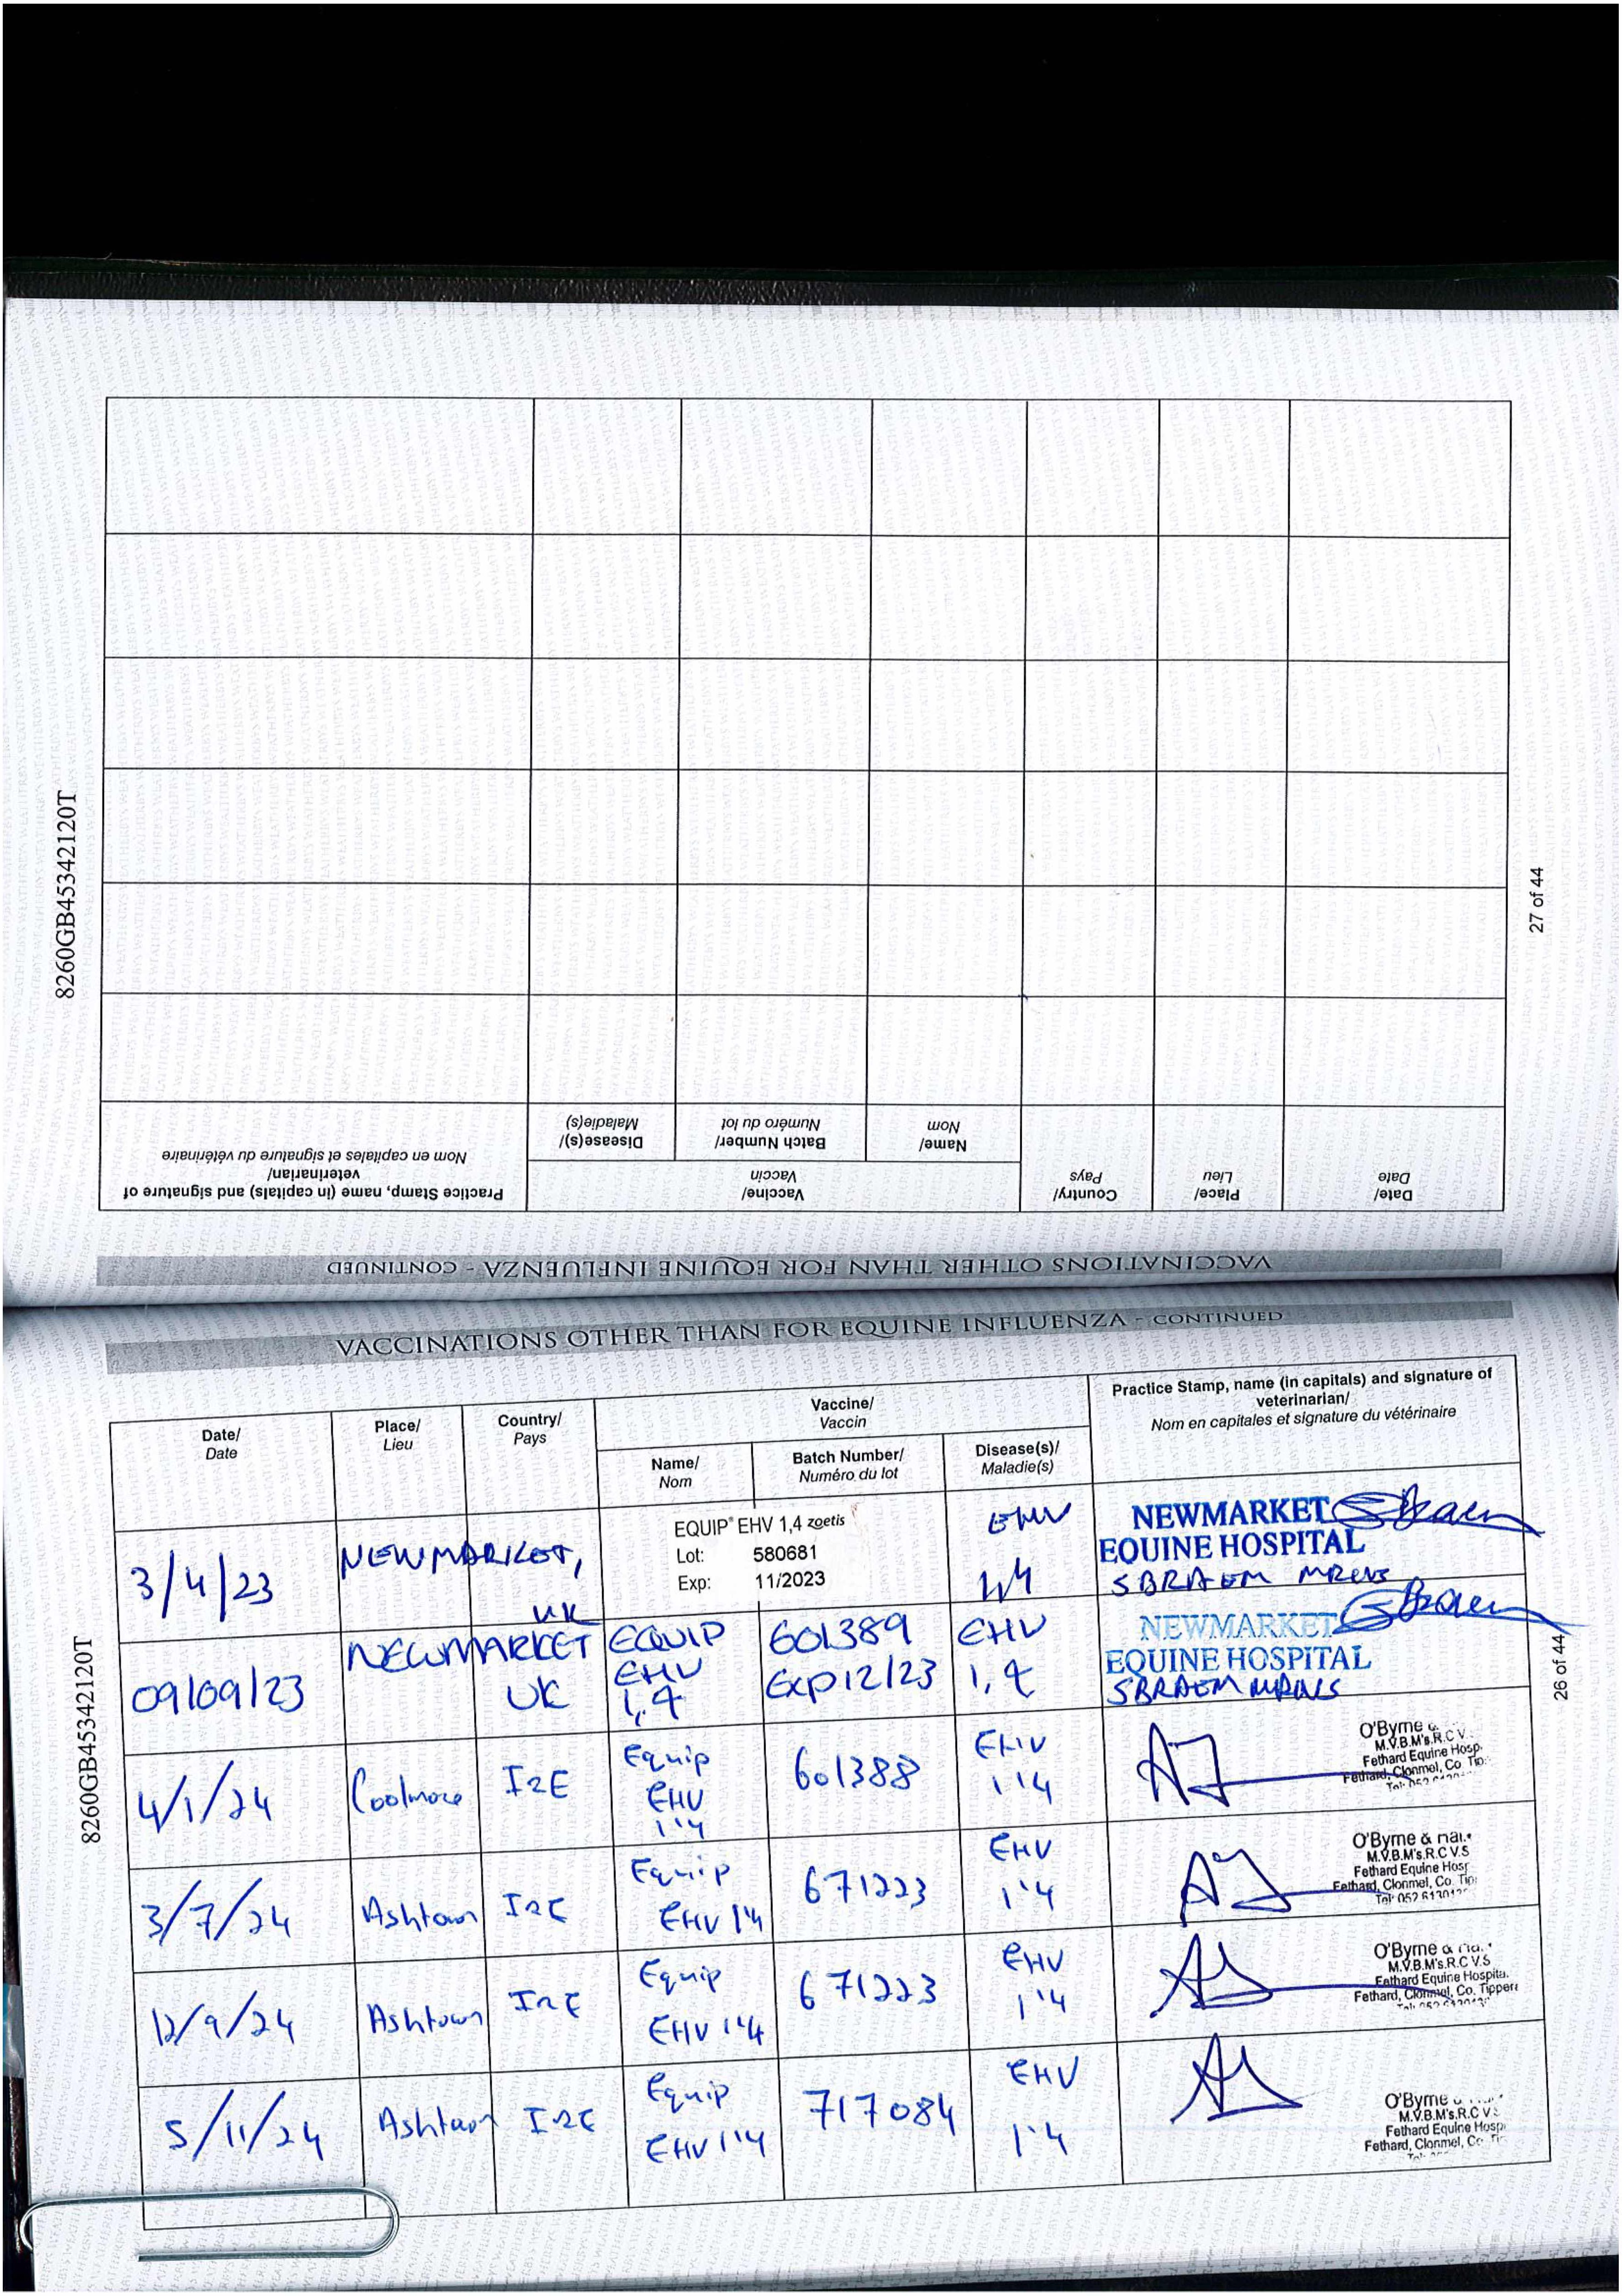 8260GB45342120T
27 of 44
VACCINATIONS OTHER THAN FOR EQUINE INFLUENZA - CONTINUED
Date/
Date
Place/
Lieu
Country/
Pays
Vaccine/
Vaccin
Name/
Nom
Batch Number/
Numéro du lot
Disease(s)/
Maladie(s)
Practice Stamp, name (in capitals) and signature of
veterinarian/
Nom en capitales et signature du vétérinaire
VACCINATIONS OTHER THAN FOR EQUINE INFLUENZA - CONTINUED
8260GB45342120T
26 of 44
Date/
Date
Place/
Lieu
Country/
Pays
Vaccine/
Vaccin
Name/
Nom
Batch Number/
Numéro du lot
Disease(s)/
Maladie(s)
Practice Stamp, name (in capitals) and signature of
veterinarian/
Nom en capitales et signature du vétérinaire
3/4/23
NEWMARKET,
UK
EQUIP® EHV 1,4 zoetis
Lot: 580681
Exp: 11/2023
EHV
1,4
NEWMARKET
EQUINE HOSPITAL
SBRAEM MRCVS
09/09/23
NEWMARKET
UK
EQUIP
EHV
1,4
601389
Exp 12/23
EHV
1,4
NEWMARKET
EQUINE HOSPITAL
SBRAEM MRCVS
4/1/24
Coolmore
IRE
Equip
EHV
1'4
601388
EHV
1'4
O'Byrne &
M.V.B.M's.R.C.V.
Fethard Equine Hosp.
Fethard, Clonmel, Co Tip
Tel: 052
3/7/24
Ashtown
IRE
Equip
EHV 1'4
671223
EHV
1'4
O'Byrne &
M.V.B.M's.R.C V.S
Fethard Equine Hosp
Fethard, Clonmel, Co. Tip
Tel: 052 61301
12/9/24
Ashtown
IRE
Equip
EHV 1'4
671223
EHV
1'4
O'Byrne &
M.V.B.M's.R.C V.S
Fethard Equine Hospita
Fethard, Clonmel, Co. Tippera
5/11/24
Ashtown
IRE
Equip
EHV 1'4
717084
EHV
1'4
O'Byrne
M.V.B.M's.R.C V
Fethard Equine Hosp
Fethard, Clonmel, Co